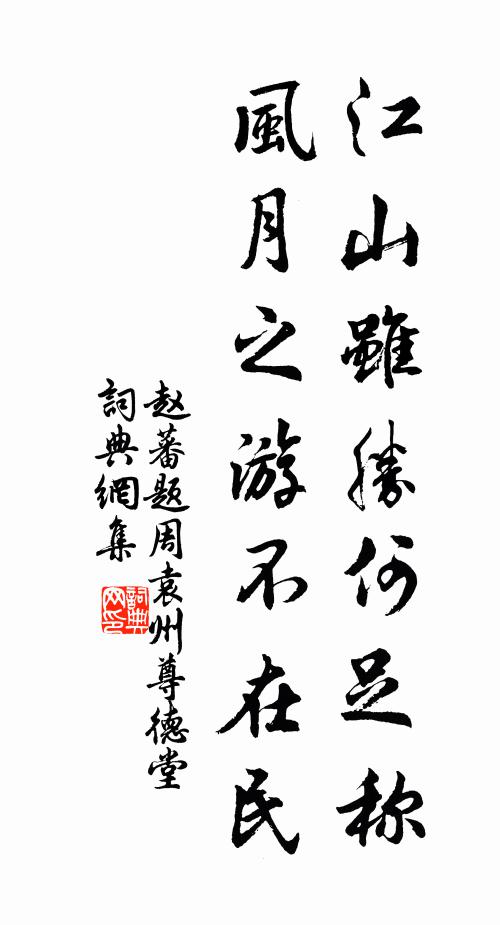 江山雖勝何足称
風月之游不在民
赵蕃題周袁州尊德堂
詞典網集
詞典網印